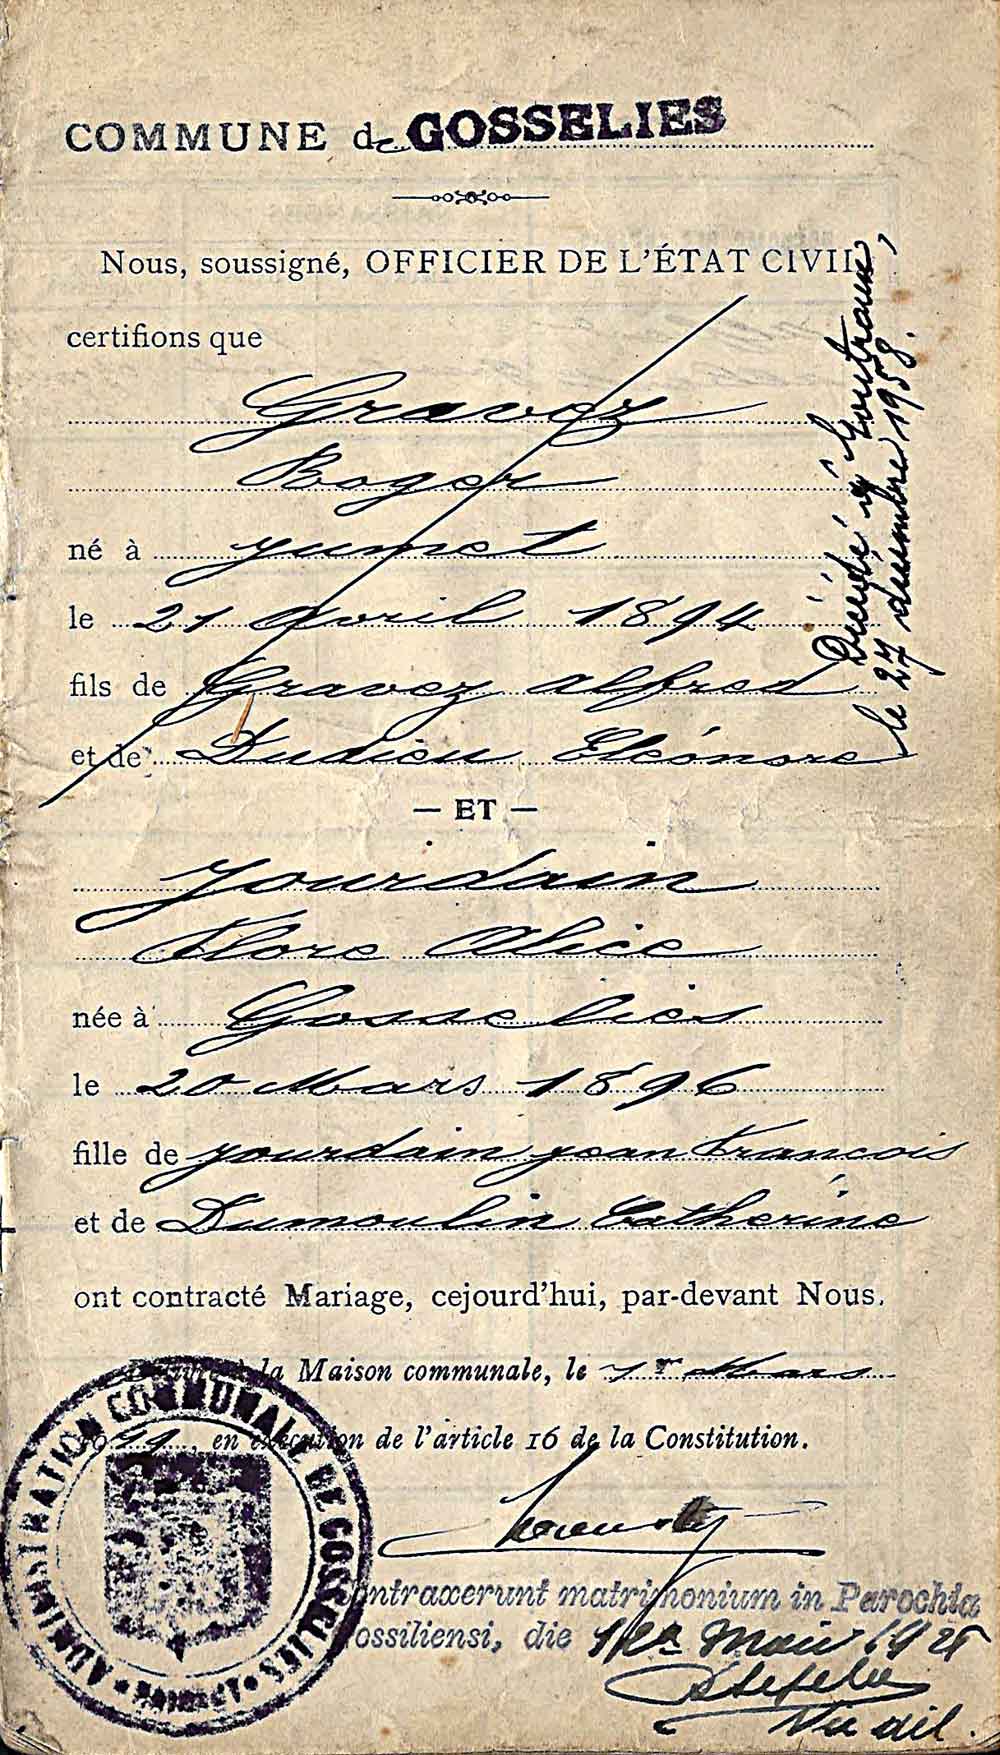 COMMUNE de GOSSELIES
Nous, soussigné, OFFICIER DE L'ÉTAT CIVIL,
certifions que
Gravez
Roger
né à Jumet
le 21 Avril 1894
fils de Gravez Alfred
et de Dudieu Eléonore
Décédé à Goutroux
le 27 décembre 1958.
— ET —
Jourdain
Flore Alice
née à Gosselies
le 20 Mars 1896
fille de Jourdain Jean François
et de Dumoulin Catherine
ont contracté Mariage, cejourd'hui, par-devant Nous.
à la Maison communale, le 1er Mars
19, en exécution de l'article 16 de la Constitution.
ADMINISTRATION COMMUNALE DE GOSSELIES
HAINAUT
contraxerunt matrimonium in Parochia
ossiliensi, die